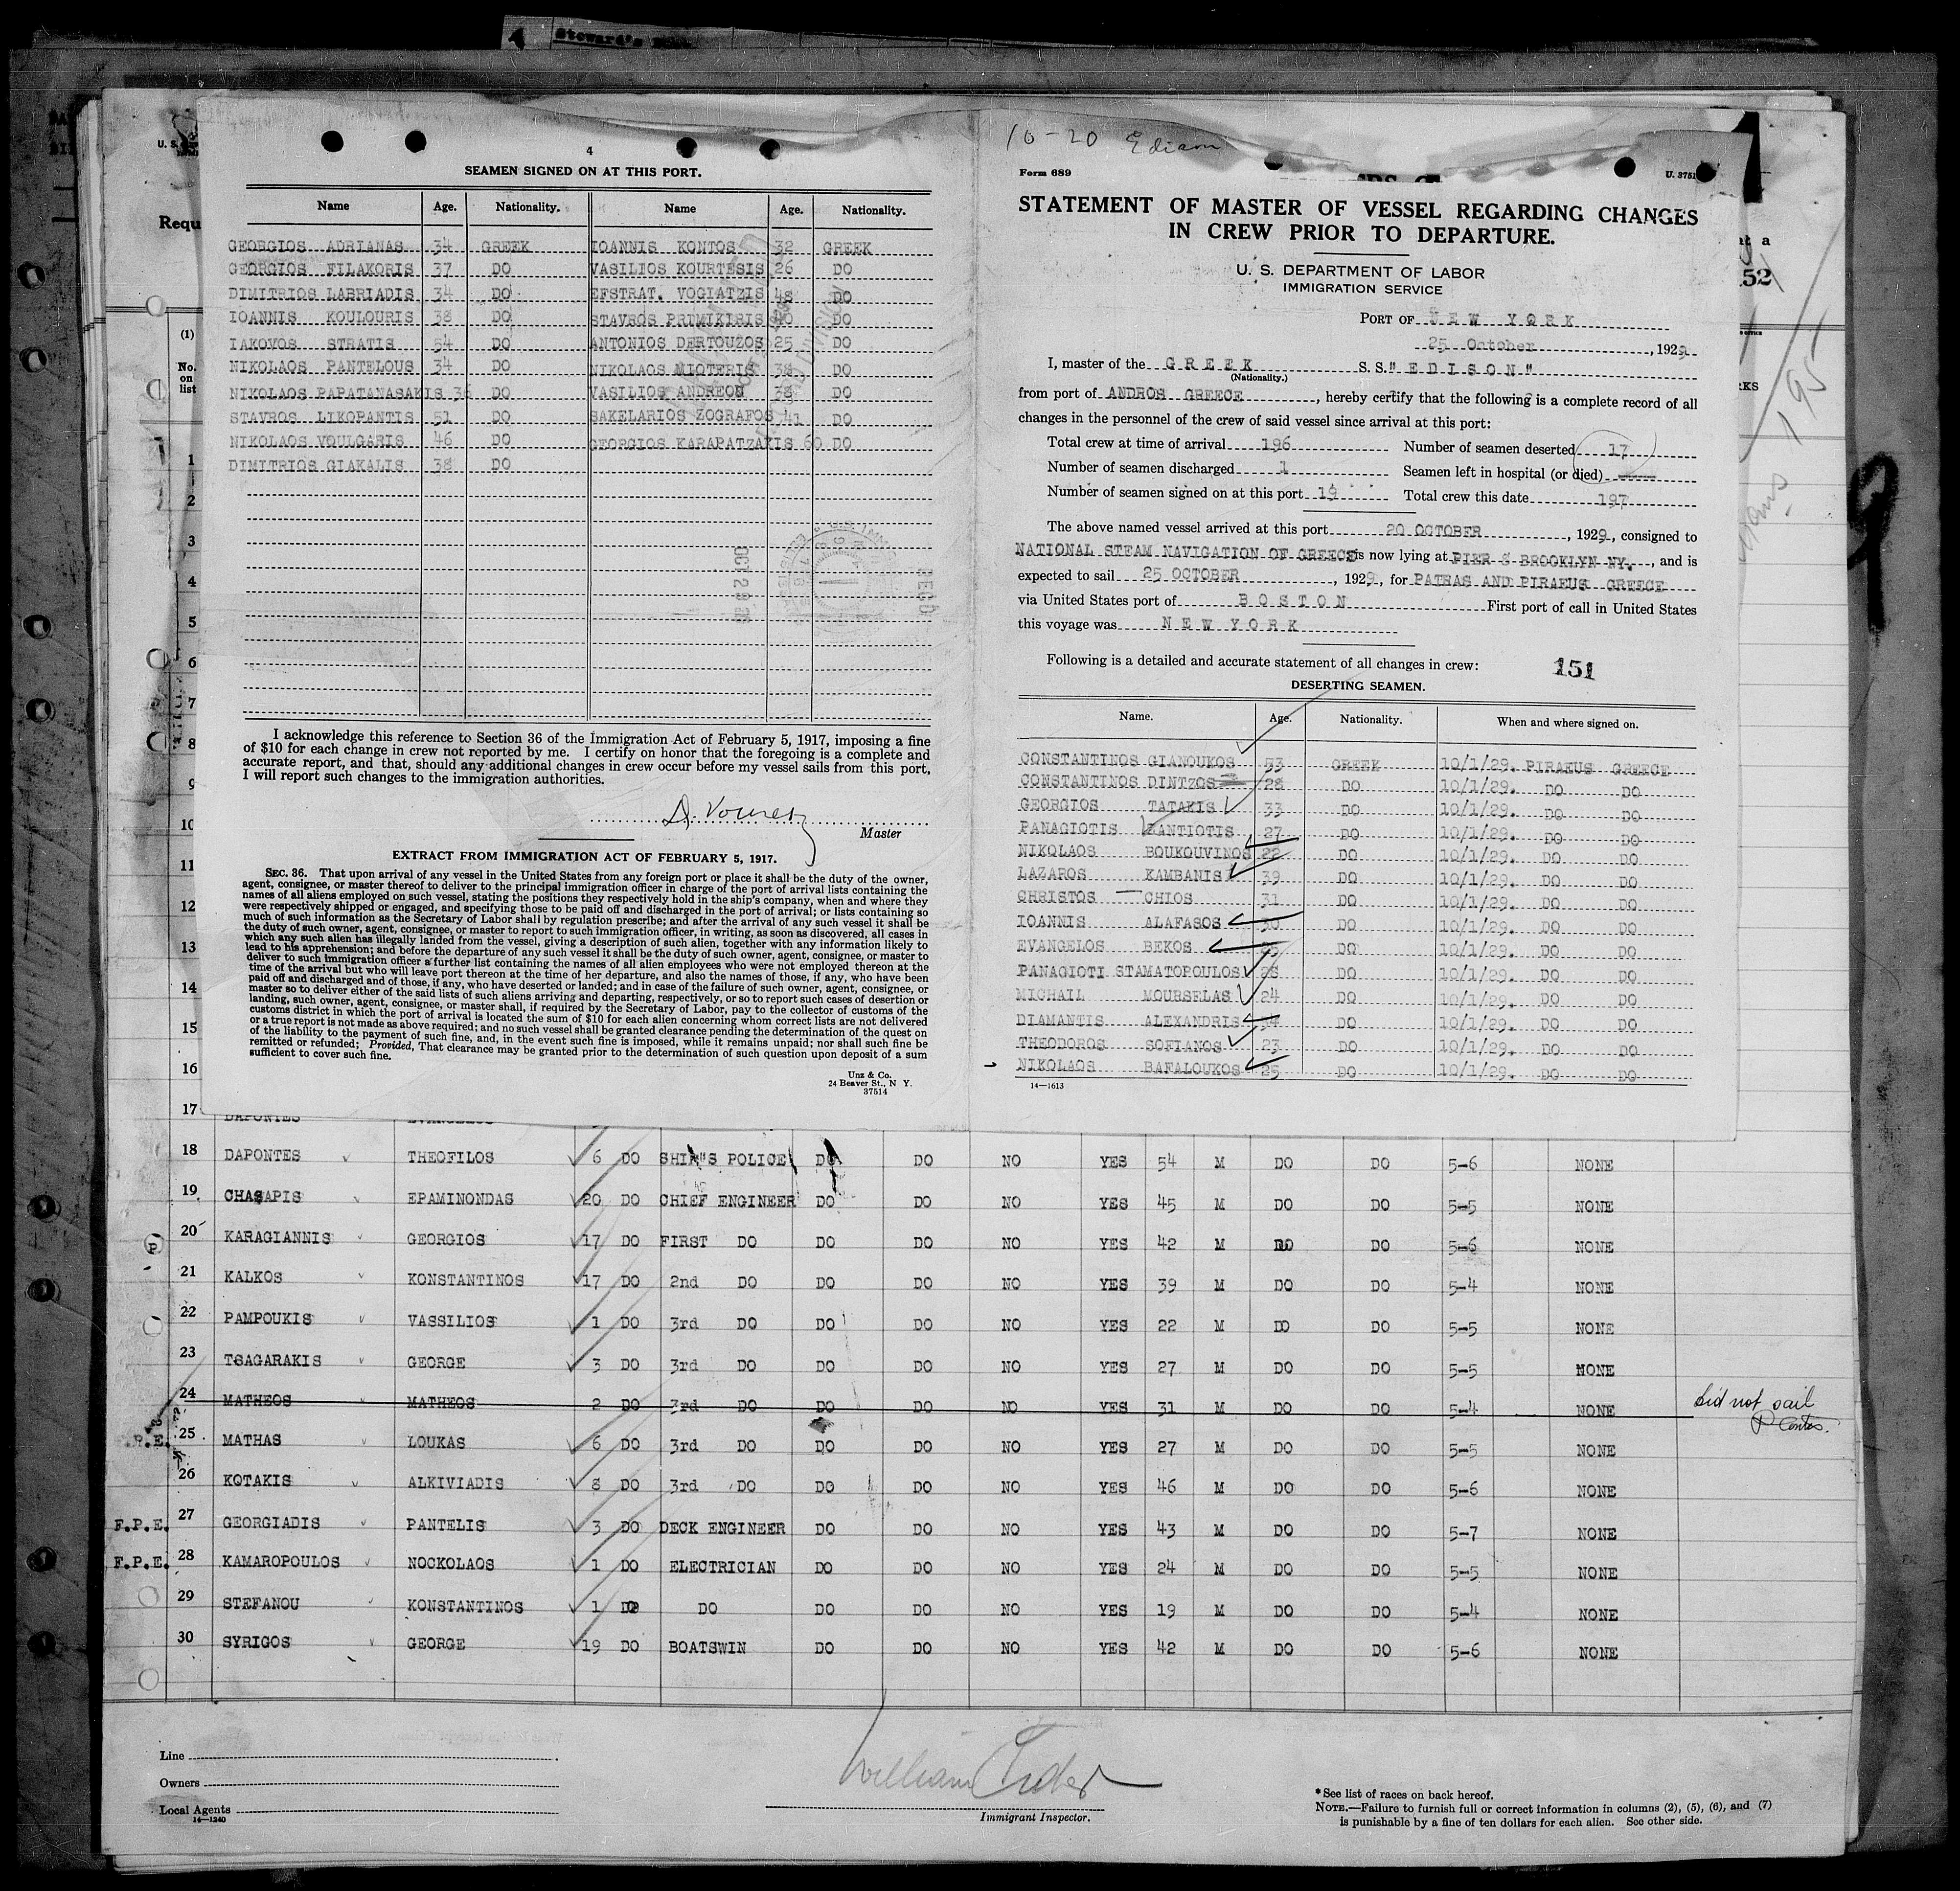 Steward's
4
SEAMEN SIGNED ON AT THIS PORT.
Name Age. Nationality. Name Age. Nationality.
GEORGIOS ADRIANAS 34 GREEK IOANNIS KONTOS 32 GREEK
GEORGIOS FILAKORIS 37 DO VASILIOS KOURTESIS 26 DO
DIMITRIOS LABRIADIS 34 DO EFSTRAT. VOGIATZIS 48 DO
IOANNIS KOULOURIS 38 DO STAVROS PRIMIKIRIS 40 DO
IAKOVOS STRATIS 54 DO ANTONIOS DERTOUZOS 25 DO
NIKOLAOS PANTELOUS 34 DO NIKOLAOS NIOTERIS 38 DO
NIKOLAOS PAPATANASAKIS 36 DO VASILIOS ANDREOU 38 DO
STAVROS LIKOPANTIS 51 DO SAKELARIOS ZOGRAFOS 41 DO
NIKOLAOS VOULGARIS 46 DO GEORGIOS KARAPATZAKIS 60 DO
DIMITRIOS GIAKALIS 38 DO
I acknowledge this reference to Section 36 of the Immigration Act of February 5, 1917, imposing a fine
of $10 for each change in crew not reported by me. I certify on honor that the foregoing is a complete and
accurate report, and that, should any additional changes in crew occur before my vessel sails from this port,
I will report such changes to the immigration authorities.
Master
EXTRACT FROM IMMIGRATION ACT OF FEBRUARY 5, 1917.
SEC. 36. That upon arrival of any vessel in the United States from any foreign port or place it shall be the duty of the owner,
agent, consignee, or master thereof to deliver to the principal immigration officer in charge of the port of arrival lists containing the
names of all aliens employed on such vessel, stating the positions they respectively hold in the ship's company, when and where they
were respectively shipped or engaged, and specifying those to be paid off and discharged in the port of arrival; or lists containing so
much of such information as the Secretary of Labor shall by regulation prescribe; and after the arrival of any such vessel it shall be
the duty of such owner, agent, consignee, or master to report to such immigration officer, in writing, as soon as discovered, all cases in
which any such alien has illegally landed from the vessel, giving a description of such alien, together with any information likely to
lead to his apprehension; and before the departure of any such vessel it shall be the duty of such owner, agent, consignee, or master to
deliver to such immigration officer a further list containing the names of all alien employees who were not employed thereon at the
time of the arrival but who will leave port thereon at the time of her departure, and also the names of those, if any, who have been
paid off and discharged and of those, if any, who have deserted or landed; and in case of the failure of such owner, agent, consignee, or
master so to deliver either of the said lists of such aliens arriving and departing, respectively, or so to report such cases of desertion or
landing, such owner, agent, consignee, or master shall, if required by the Secretary of Labor, pay to the collector of customs of the
customs district in which the port of arrival is located the sum of $10 for each alien concerning whom correct lists are not delivered
or a true report is not made as above required; and no such vessel shall be granted clearance pending the determination of the quest on
of the liability to the payment of such fine, and, in the event such fine is imposed, while it remains unpaid; nor shall such fine be
remitted or refunded; Provided, That clearance may be granted prior to the determination of such question upon deposit of a sum
sufficient to cover such fine.
Unz & Co.
24 Beaver St., N Y.
37514
10-20 Edison
Form 689
U. 3751
STATEMENT OF MASTER OF VESSEL REGARDING CHANGES
IN CREW PRIOR TO DEPARTURE.
U. S. DEPARTMENT OF LABOR
IMMIGRATION SERVICE
PORT OF NEW YORK
25 October, 1929
I, master of the GREEK S.S." EDISON"
(Nationality.)
from port of ANDROS GREECE, hereby certify that the following is a complete record of all
changes in the personnel of the crew of said vessel since arrival at this port:
Total crew at time of arrival 196 Number of seamen deserted 17
Number of seamen discharged 1 Seamen left in hospital (or died)
Number of seamen signed on at this port 19 Total crew this date 197
The above named vessel arrived at this port 20 OCTOBER, 1929, consigned to
NATIONAL STEAM NAVIGATION OF GREECE is now lying at PIER & BROOKLYN NY., and is
expected to sail 25 OCTOBER, 1929, for PATRAS AND PIRAEUS GREECE
via United States port of BOSTON First port of call in United States
this voyage was NEW YORK
Following is a detailed and accurate statement of all changes in crew: 151
DESERTING SEAMEN.
Name. Age. Nationality. When and where signed on.
CONSTANTINOS GIANOUKOS 53 GREEK 10/1/29. PIRAEUS GREECE
CONSTANTINOS DINTZOS 28 DO 10/1/29. DO DO
GEORGIOS TATAKIS 33 DO 10/1/29. DO DO
PANAGIOTIS XANTIOTIS 27 DO 10/1/29. DO DO
NIKOLAOS BOUKOUVINOS 22 DO 10/1/29. DO DO
LAZAROS KAMBANIS 39 DO 10/1/29. DO DO
CHRISTOS CHIOS 31 DO 10/1/29. DO DO
IOANNIS ALAFASOS 30 DO 10/1/29. DO DO
EVANGELOS BEKOS DO 10/1/29. DO DO
PANAGIOTI STAMATOPOULOS 28 DO 10/1/29. DO DO
MICHAIL MOURSELAS 24 DO 10/1/29. DO DO
DIAMANTIS ALEXANDRIS 34 DO 10/1/29. DO DO
THEODOROS SOFIANOS 23 DO 10/1/29. DO DO
NIKOLAOS BAFALOUKOS 25 DO 10/1/29. DO DO
14—1613
U. S.
Requ
(1)
No. on list
1
2
3
4
5
6
7
8
9
10
11
12
13
14
15
16
17 DAPONTES EVANGELOS
18 DAPONTES THEOFILOS 6 DO SHIP"S POLICE DO DO NO YES 54 M DO DO 5-6 NONE
19 CHASAPIS EPAMINONDAS 20 DO CHIEF ENGINEER DO DO NO YES 45 M DO DO 5-5 NONE
20 KARAGIANNIS GEORGIOS 17 DO FIRST DO DO DO NO YES 42 M DO DO 5-6 NONE
21 KALKOS KONSTANTINOS 17 DO 2nd DO DO DO NO YES 39 M DO DO 5-4 NONE
22 PAMPOUKIS VASSILIOS 1 DO 3rd DO DO DO NO YES 22 M DO DO 5-5 NONE
23 TSAGARAKIS GEORGE 3 DO 3rd DO DO DO NO YES 27 M DO DO 5-5 NONE
24 MATHEOS MATHEOS 2 DO 3rd DO DO DO NO YES 31 M DO DO 5-4 NONE did not sail
25 MATHAS LOUKAS 6 DO 3rd DO DO DO NO YES 27 M DO DO 5-5 NONE
26 KOTAKIS ALKIVIADIS 8 DO 3rd DO DO DO NO YES 46 M DO DO 5-6 NONE
F.P.E. 27 GEORGIADIS PANTELIS 3 DO DECK ENGINEER DO DO NO YES 43 M DO DO 5-7 NONE
F.P.E. 28 KAMAROPOULOS NOCKOLAOS 1 DO ELECTRICIAN DO DO NO YES 24 M DO DO 5-5 NONE
29 STEFANOU KONSTANTINOS 1 DO DO DO DO NO YES 19 M DO DO 5-4 NONE
30 SYRIGOS GEORGE 19 DO BOATSWIN DO DO NO YES 42 M DO DO 5-6 NONE
Line
Owners
Local Agents
14—1240
William
Immigrant Inspector.
* See list of races on back hereof.
NOTE.—Failure to furnish full or correct information in columns (2), (5), (6), and (7)
is punishable by a fine of ten dollars for each alien. See other side.